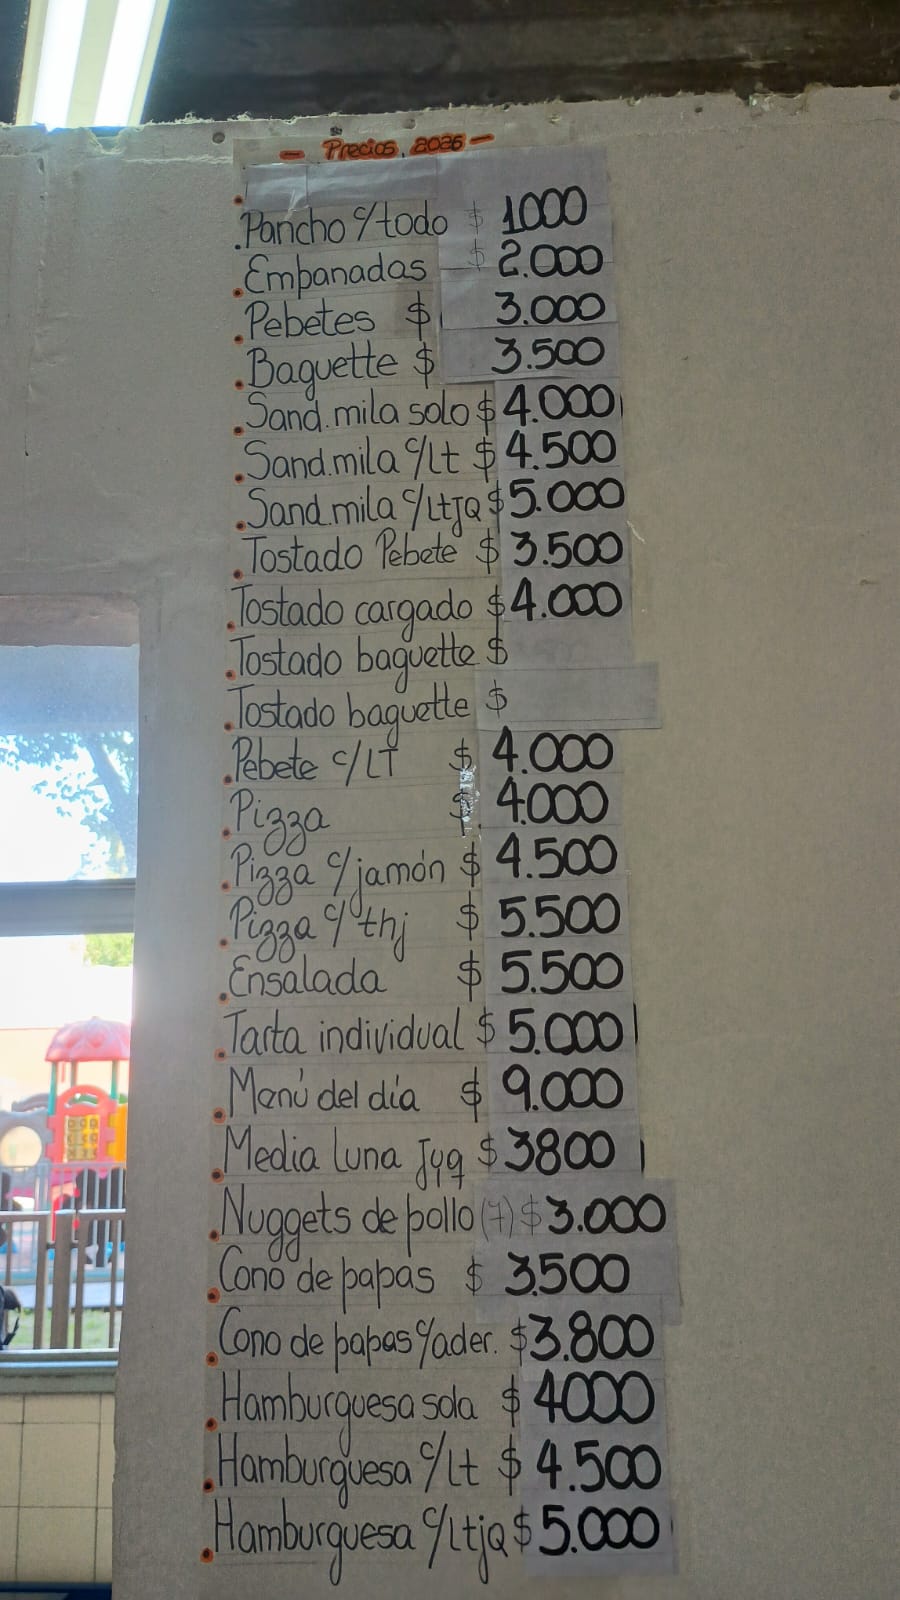 - Precios 2026 -
Pancho c/todo $ 1000
Empanadas $ 2.000
Pebetes $ 3.000
Baguette $ 3.500
Sand. mila solo $ 4.000
Sand. mila c/lt $ 4.500
Sand. mila c/ltjq $ 5.000
Tostado Pebete $ 3.500
Tostado cargado $ 4.000
Tostado baguette $
Tostado baguette $
Pebete c/LT $ 4.000
Pizza $ 4.000
Pizza c/jamón $ 4.500
Pizza c/thj $ 5.500
Ensalada $ 5.500
Tarta individual $ 5.000
Menú del día $ 9.000
Media luna Jyq $ 3800
Nuggets de pollo (7) $ 3.000
Cono de papas $ 3.500
Cono de papas c/ader. $ 3.800
Hamburguesa sola $ 4000
Hamburguesa c/lt $ 4.500
Hamburguesa c/ltjq $ 5.000